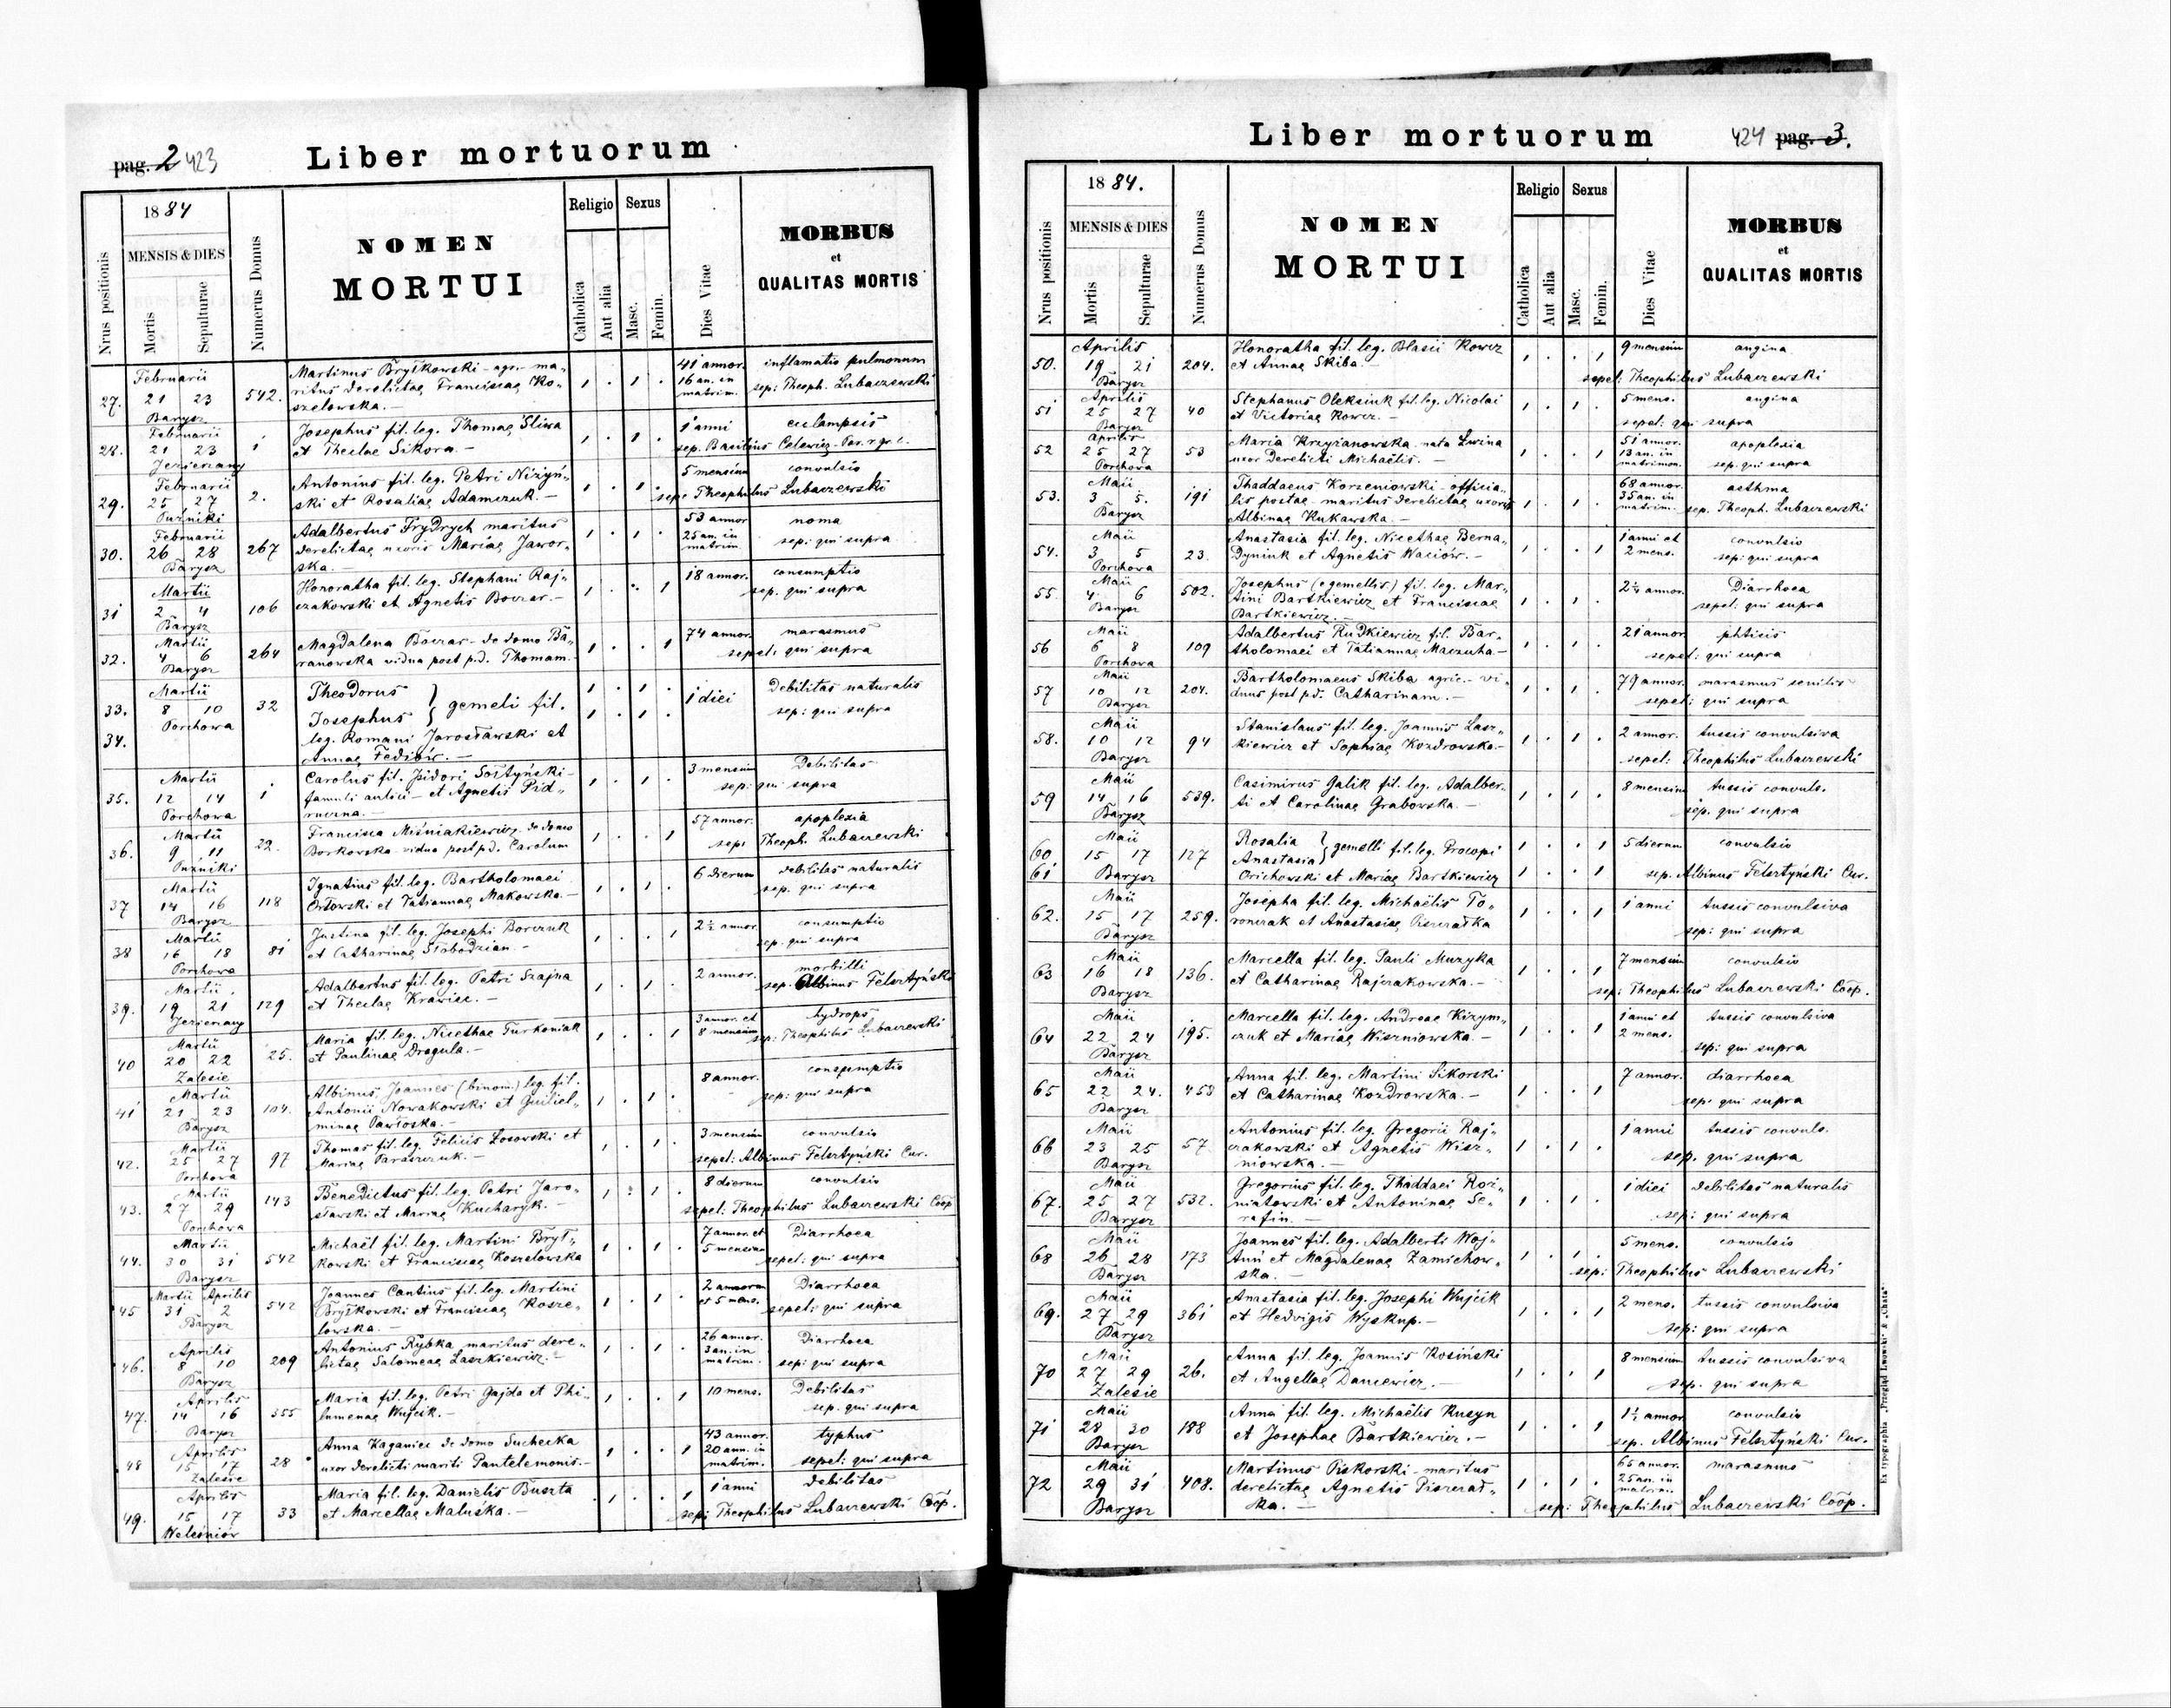 pag. 2 423
Liber mortuorum
1884
Religio
Sexus
Nrus positionis
MENSIS & DIES
Mortis
Sepulturae
Numerus Domus
NOMEN
MORTUI
Catholica
Aut alia
Masc.
Femin.
Dies Vitae
MORBUS
et
QUALITAS MORTIS
27. Februarii 21 23 Barysz 542. Martinus Brytkowski - agr. ma„
ritus derelictae Franciscae Ko„
szelowska.— 41 annor. 16 an. in matrim. inflamatio pulmonum
sep: Theoph. Lubaczewski
28. Februarii 21 23 Jezierzany 1 Josephus fil. leg. Thomae Śliwa
et Theclae Sikora.— 1 anni eclampsis
sep. Basilius Celewicz
29. Februarii 25 27 Puźniki 2. Antonius fil. leg. Petri Niżyń„
ski et Rosaliae Adamczuk.— 5 mensium convulsio
sep: Theophilus Lubaczewski
30. Februarii 26 28 Barysz 267 Adalbertus Frydrych maritus
derelictae uxoris Mariae Jawor„
ska.— 53 annor 25 an. in matrim. noma
sep: qui supra
31 Martii 2 4 Barysz 106 Honoratha fil. leg. Stephani Raj„
czakowski et Agnetis Boczar.— 18 annor. consumptio
sep. qui supra
32. Martii 4 6 Barysz 264 Magdalena Boczar - de domo Ba„
ranowska vidua post p.d. Thomam. 74 annor. marasmus
sepel: qui supra
33. Martii 8 10 Porchowa 32 Theodorus
34. Josephus } gemeli fil.
leg. Romani Jarosławski et
Annae Fediów.— 1 diei Debilitas naturalis
sep: qui supra
35. Martii 12 14 Porchowa 1 Carolus fil. Isidori Sołtyński -
famuli aulici - et Agnetis Pid„
ruczna.— 3 mensium Debilitas
sep: qui supra
36. Martii 9 11 Puźniki 22. Francisca Miśniakiewicz de domo
Borkowska vidua post p.d. Carolum 57 annor. apoplexia
sep: Theoph. Lubaczewski
37 Martii 14 16 Barysz 118 Ignatius fil. leg. Bartholomaei
Orłowski et Tatiannae Makowska.— 6 dierum debilitas naturalis
sep. qui supra
38 Martii 16 18 Porchowa 81 Justina fil. leg. Josephi Borczuk
et Catharinae Słobodzian.— 2½ annor. consumptio
sep. qui supra
39. Martii 19 21 Jezierzany 129 Adalbertus fil. leg. Petri Szajna
et Theclae Krawiec.— 2 annor. morbilli
sep. Albinus Felsztyński
40 Martii 20 22 Zalesie 25. Maria fil. leg. Nicethae Turkoniak
et Paulinae Dragula.— 3 annor. et 8 mensium hydrops
sep: Theophilus Lubaczewski
41 Martii 21 23 Barysz 104. Albinus, Joannes (binom.) leg. fil.
Antonii Nowakowski et Guiliel„
minae Pawłoska.— 8 annor. consumptio
sep: qui supra
42. Martii 25 27 Porchowa 97 Thomas fil. leg. Felicis Łosowski et
Mariae Paraszczuk.— 3 mensium convulsio
sepel: Albinus Felsztyński Cur.
43. Martii 27 29 Porchowa 143 Benedictus fil. leg. Petri Jaro„
sławski et Mariae Kucharyk.— 8 dierum convulsio
sepel: Theophilus Lubaczewski Coop
44. Martii 30 31 Barysz 542 Michaël fil. leg. Martini Bryt„
kowski et Franciscae Koszelowska 7 annor. et 5 mensium Diarrhoea
sepel: qui supra
45 Martii Aprilis 31 2 Barysz 542 Joannes Cantius fil. leg. Martini
Brytkowski et Franciscae Kosze„
lowska.— 2 annorum et 5 mens. Diarrhoea
sepel: qui supra
46. Aprilis 8 10 Barysz 209 Antonius Rybka maritus dere„
lictae Salomeae Laszkiewicz.— 26 annor. 3 an. in matrim. Diarrhoea
sep: qui supra
47. Aprilis 14 16 Barysz 355 Maria fil. leg. Petri Gajda et Phi„
lumenae Wujcik.— 10 mens. Debilitas
sep. qui supra
48 Aprilis 15 17 Zalesie 28 Anna Kaganiec de domo Suchecka
uxor derelicti mariti Pantelemonis.— 43 annor. 20 ann. in matrim. typhus
sepel: qui supra
49. Aprilis 15 17 Weleśniów 33 Maria fil. leg. Danielis Buszta
et Marcellae Maluśka.— 1 anni debilitas
sep: Theophilus Lubaczewski Coop.
Liber mortuorum
424 pag. 3.
1884.
Religio
Sexus
Nrus positionis
MENSIS & DIES
Mortis
Sepulturae
Numerus Domus
NOMEN
MORTUI
Catholica
Aut alia
Masc.
Femin.
Dies Vitae
MORBUS
et
QUALITAS MORTIS
50. Aprilis 19 21 Barysz 204. Honoratha fil. leg. Blasii Kowcz
et Annae Skiba.— 9 mensium angina
sepel: Theophilus Lubaczewski
51 Aprilis 25 27 Barysz 40 Stephanus Oleksiuk fil. leg. Nicolai
et Victoriae Kowcz.— 5 mens. angina
sepel: qui supra
52 Aprilis 25 27 Porchowa 53 Maria Krzyżanowska nata Lwina
uxor derelicti Michaëlis.— 51 annor. 13 an. in matrimon. apoplexia
sep. qui supra
53. Maii 3 5. Barysz 191 Thaddaeus Korzeniowski - officia„
lis postae - maritus derelictae uxoris
Albinae Kukawska.— 68 annor. 35 an. in matrim. asthma
sep. Theoph. Lubaczewski
54. Maii 3 5 Porchowa 23. Anastasia fil. leg. Nicethae Berna„
dyniuk et Agnetis Waciów.— 1 anni et 2 mens. convulsio
sep: qui supra
55. Maii 4 6 Barysz 502. Josephus (e gemellis) fil. leg. Mar„
tini Bartkiewicz et Franciscae
Bartkiewicz.— 2¼ annor. Diarrhoea
sepel: qui supra
56 Maii 6 8 Porchowa 109 Adalbertus Rudkiewicz fil. Bar„
tholomaei et Tatiannae Maczuha— 21 annor. phtisis
sepel: qui supra
57 Maii 10 12 Barysz 204. Bartholomaeus Skiba agric. - vi„
duus post p.d. Catharinam.— 79 annor. marasmus senilis
sepel: qui supra
58. Maii 10 12 Barysz 94 Stanislaus fil. leg. Joannis Lasz„
kiewicz et Sophiae Kozdrowska— 2 annor. tussis convulsiva
sepel: Theophilus Lubaczewski
59 Maii 14 16 Barysz 539. Casimirus Galik fil. leg. Adalber„
ti et Carolinae Grabowska.— 8 mensium tussis convuls.
sep. qui supra
60 Maii 15 17 Barysz 127 Rosalia
61 Anastasia } gemelli fil. leg. Procopi
Orichowski et Mariae Bartkiewicz 5 dierum convulsio
sep. Albinus Felsztyński Cur.
62. Maii 15 17 Barysz 259. Josepha fil. leg. Michaëlis To„
ronczak et Anastasiae Piszczatka 1 anni tussis convulsiva
sep: qui supra
63 Maii 16 18 Barysz 136. Marcella fil. leg. Pauli Muzyka
et Catharinae Rajczakowska.— 7 mensium convulsio
sep: Theophilus Lubaczewski Coop.
64 Maii 22 24 Barysz 195. Marcella fil. leg. Andreae Kizym„
czuk et Mariae Wiszniowska.— 1 anni et 2 mens. tussis convulsiva
sep: qui supra
65 Maii 22 24. Barysz 453 Anna fil. leg. Martini Sikorski
et Catharinae Kozdrowska.— 7 annor. diarrhoea
sep: qui supra
66 Maii 23 25 Barysz 57. Antonius fil. leg. Gregorii Raj„
czakowski et Agnetis Wisz„
niowska.— 1 anni tussis convuls.
sep. qui supra
67. Maii 25 27 Barysz 532. Gregorius fil. leg. Thaddaei Roz„
niatowski et Antoninae Se„
rafin.— 1 diei debilitas naturalis
sep: qui supra
68 Maii 26 28 Barysz 173 Joannes fil. leg. Adalberti Woj„
tuń et Magdalenae Zamichow„
ska.— 5 mens. convulsio
sep: Theophilus Lubaczewski
69. Maii 27 29 Barysz 361 Anastasia fil. leg. Josephi Wujcik
et Hedvigis Wyskup.— 2 mens. tussis convulsiva
sep: qui supra
70 Maii 27 29 Zalesie 26. Anna fil. leg. Joannis Kosiński
et Angellae Dancewicz.— 8 mensium tussis convulsiva
sep. qui supra
71 Maii 28 30 Barysz 188 Anna fil. leg. Michaëlis Rusyn
et Josephae Bartkiewicz.— 1½ annor convulsio
sep. Albinus Felsztyński Cur.
72 Maii 29 31 Barysz 408. Martinus Piskorski - maritus
derelictae Agnetis Piszczat„
ka.— 65 annor. 25 an. in matrim. marasmus
sep: Theophilus Lubaczewski Coop.
Ex typographia „Przegląd Lwowski“ & „Chata“.